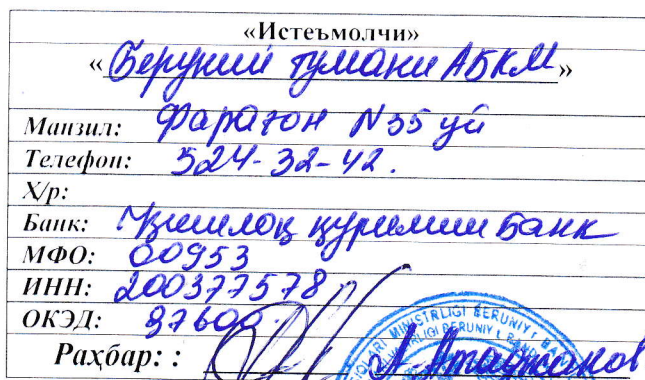 «Истеъмолчи»
« Беруний тумани АБКМ »
Манзил: Фарагон N 35 уй
Телефон: 524-32-42.
Х/р:
Банк: Қишлоқ қурилиш Банк
МФО: 00953
ИНН: 200377578
ОКЭД: 97600
Раҳбар: :
MINISTRLIGI BERUNIY
BERUNIY